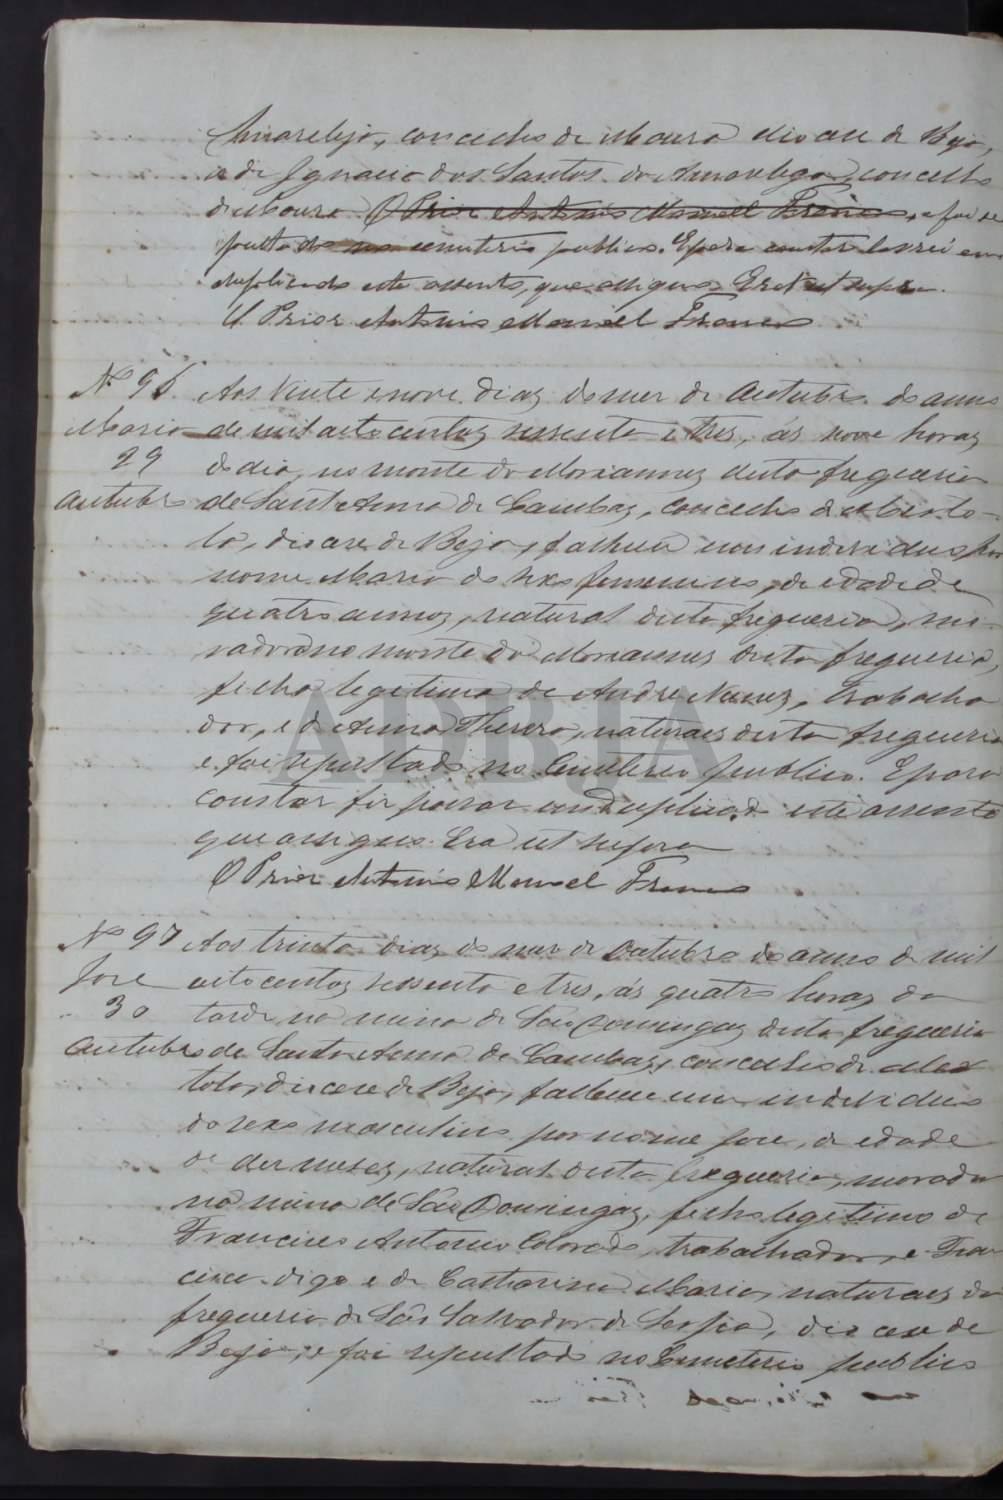 Amarelejo, concelho de Moura diocese de Beja,
e de Ignacio dos Santos do Amarelejo, concelho
de Moura. O Prior Antonio Manoel Franco, e foi se
pultado no cemiterio publico. E para constar lavrei em
duplicado este assento, que assigno. Era ut supra.
O Prior Antonio Manoel Franco
Nº 96 Aos vinte e nove dias do mez de Outubro do anno
Maria de mil oito centos sessenta e tres, ás nove horas
29 do dia, no monte do Mariannes desta freguesia
Outubro de Sant Anna de Cambas, concelho de Merto-
la, diocese de Beja, falleceu um individuo por
nome Maria do sexo femenino, de edade de
quatro annos, natural desta freguesia, mo-
radora no monte do Mariannes desta freguesia,
filha legitima de Andre Nunes, trabalha
dor, e de Anna Thereza, naturaes desta freguesia
e foi sepultada no Cemiterio publico. E para
constar fiz passar em duplicado este assento
que assigno. Era ut supra
O Prior Antonio Manoel Franco
Nº 97 Aos trinta dias do mez de Outubro do anno de mil
José oito centos sessenta e tres, ás quatro horas da
30 tarde na mina de São Domingos desta freguesia
Outubro de Santa Anna de Cambas, concelho de Mer
tola, diocese de Beja, falleceu um individuo
do sexo masculino por nome José, de edade
de dez mezes, natural desta freguesia, morador
na mina de São Domingos, filho legitimo de
Francisco Antonio Colorado, trabalhador, e Fran
cisca digo e de Catharina Maria, naturaes da
freguesia de São Salvador de Serpa, diocese de
Beja, e foi sepultado no Cemiterio publico
ADBJA